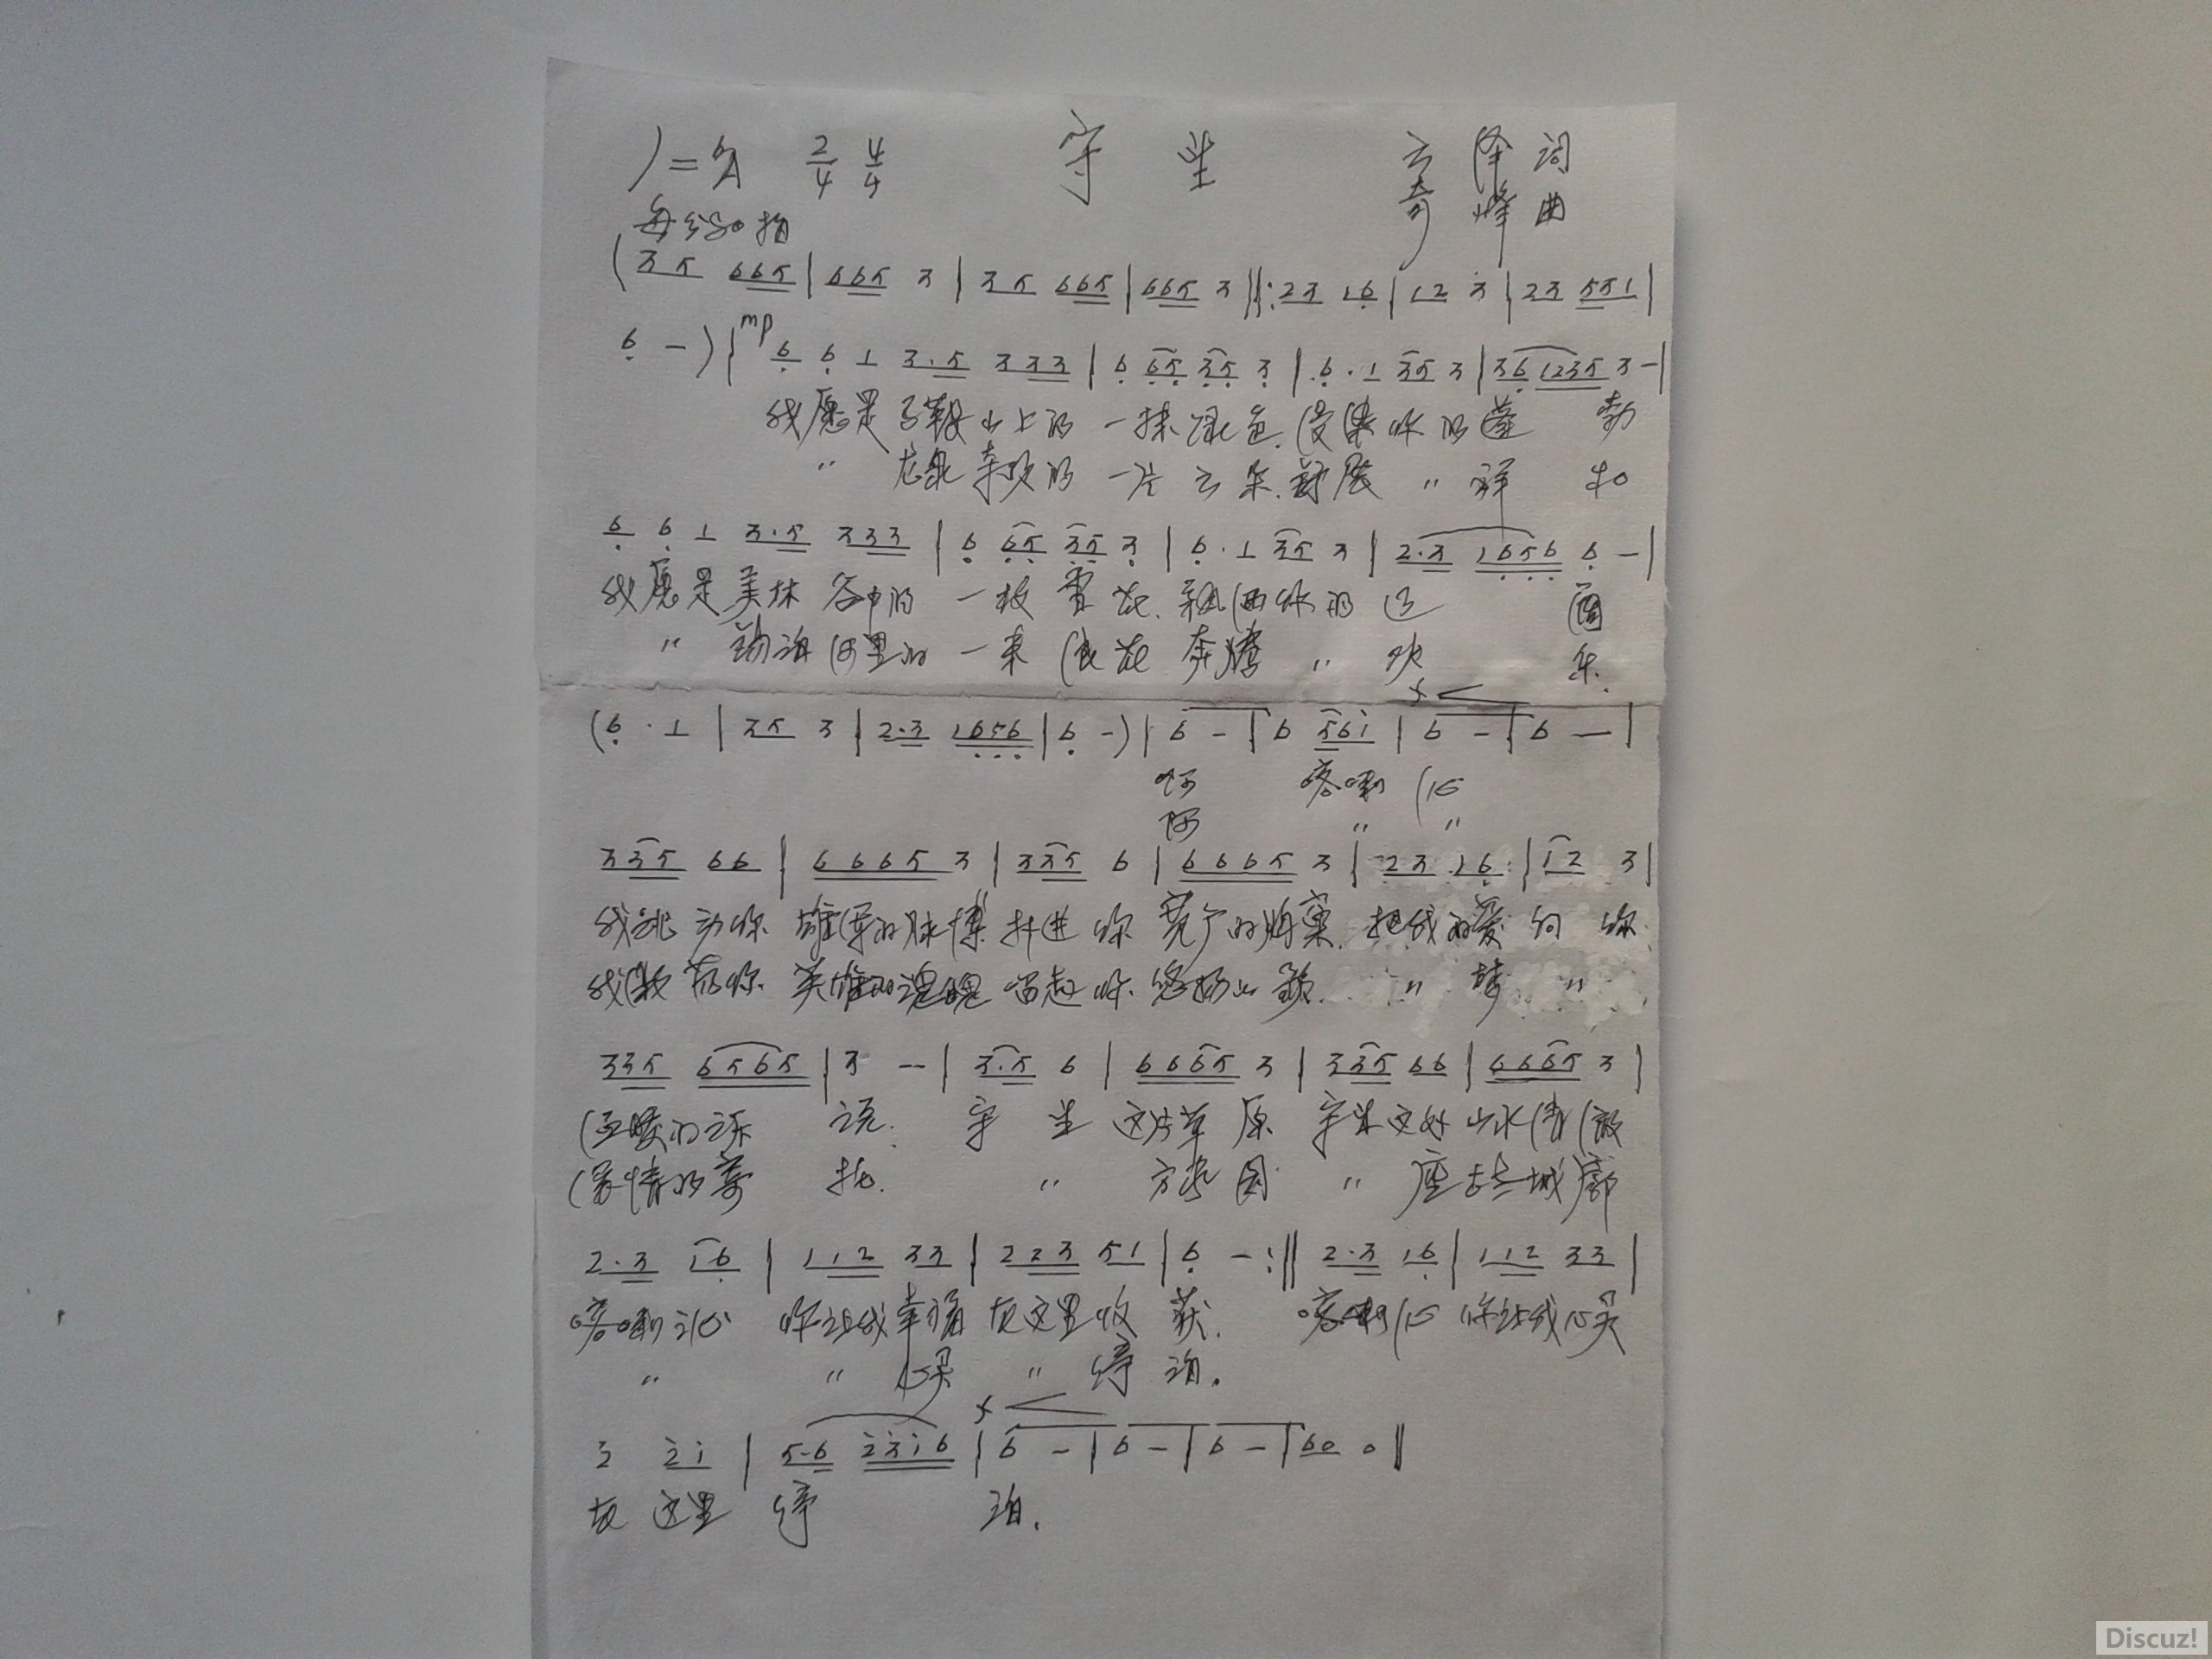 1=A 2/4 4/4 守望 云泽 词
每分80拍 奇峰 曲
(3 5 6 6 5 | 6 6 5 3 | 3 5 6 6 5 | 6 6 5 3 ‖: 2 3 1 6 | 1 2 3 | 2 3 5 5 1 |
6 - ) | mp 6 6 1 3·5 3 3 3 | 6 6 5 3 5 3 | 6·1 3 5 3 | 3 6 1 2 3 5 3 - |
我愿是马鞍山上的 一抹绿色.浸染你的蓬 勃
〃 龙泉寺顶的 一片云朵.舒展 〃 祥 和
6 6 1 3·5 3 3 3 | 6 6 5 3 5 3 | 6·1 3 5 3 | 2·3 1 6 5 6 6 - |
我愿是美林谷中的 一枚雪花.飘洒你的
〃 锡泊河里的 一束浪花 奔腾 〃 欢 乐.
(6·1 | 3 5 3 | 2·3 1 6 5 6 | 6 - ) | 6 - | 6 5 6 i | f 6 - | 6 - |
啊 喀喇沁
啊 〃 〃
3 3 5 6 6 | 6 6 6 5 3 | 3 3 5 6 | 6 6 6 5 3 | 2 3 1 6 | 1 2 3 |
我跳动你 雄浑的脉搏 扑进你 宽广的胸窝. 把我的爱向你
我激荡你 英雄的魂魄 唱起你 悠扬的歌. 〃 梦 〃
3 3 5 6 5 6 5 | 3 - | 3·5 6 | 6 6 6 5 3 | 3 3 5 6 6 | 6 6 6 5 3 |
温暖的诉 说. 守 望 这片草 原 守望这好山水清澈
深情的寄 托. 〃 方家园 〃 座古老城廓
2·3 1 6 | 1 1 2 3 3 | 2 2 3 5 1 | 6 - :‖ 2·3 1 6 | 1 1 2 3 3 |
喀喇沁 你让我幸福在这里收 获. 喀喇沁 你让我心灵
〃 〃 心灵 〃 停 泊.
3 2 i | 5·6 2 3 i 6 | f 6 - | 6 - | 6 - | 6 0 0 ‖
在 这里 停 泊.
Discuz!